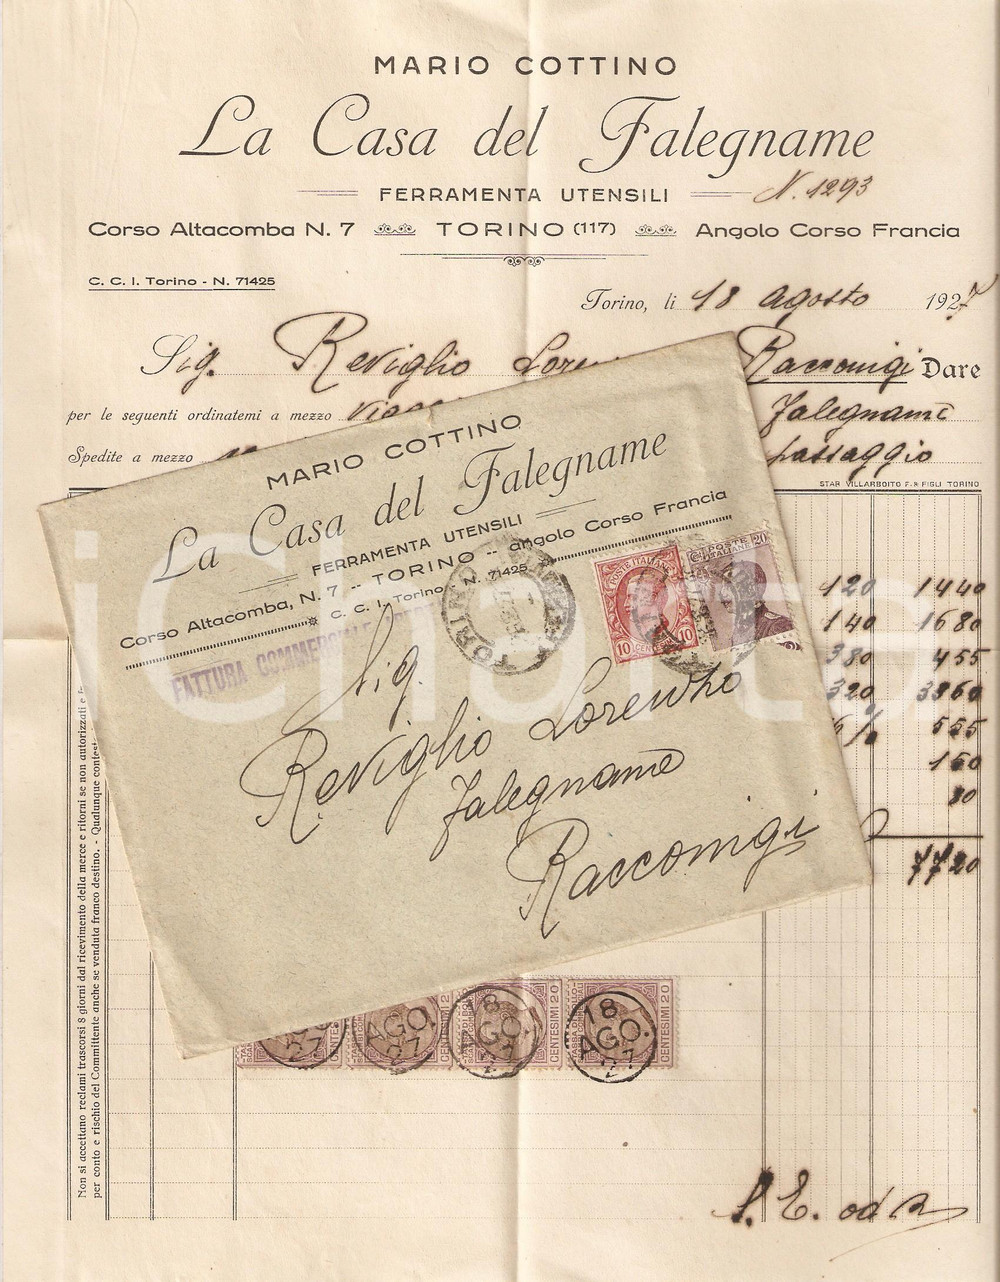 MARIO COTTINO
La Casa del Falegname
FERRAMENTA UTENSILI
N. 1293
Corso Altacomba N. 7 TORINO (117) Angolo Corso Francia
C. C. I. Torino - N. 71425
Torino, li 18 agosto 1927
Sig. Reviglio Racconigi Dare
per le seguenti ordinatemi a mezzo Falegname
Spedite a mezzo passaggio
STAB. VILLARBOITO F. & FIGLI TORINO
120 1440
140 1680
380 455
320 3860
6% 555
150
80
7720
MARIO COTTINO
La Casa del Falegname
FERRAMENTA UTENSILI
Corso Altacomba, N. 7 -- TORINO -- angolo Corso Francia
C. C. I. Torino N. 71425
FATTURA COMMERCIALE APERTA
POSTE ITALIANE
10 CENTESIMI 10
POSTE ITALIANE 20
TORINO
Sig.
Reviglio Lorenzo
Falegname
Racconigi
iCharta
Non si accettano reclami trascorsi 8 giorni dal ricevimento della merce e ritorni se non autorizzati e
per conto e rischio del Committente anche se venduta franco destino. - Qualunque contest
AGO. 27
AGO. 27
18 AGO. 27
18 AGO. 27
CENTESIMI 20
CENTESIMI 20
S. E. od O.